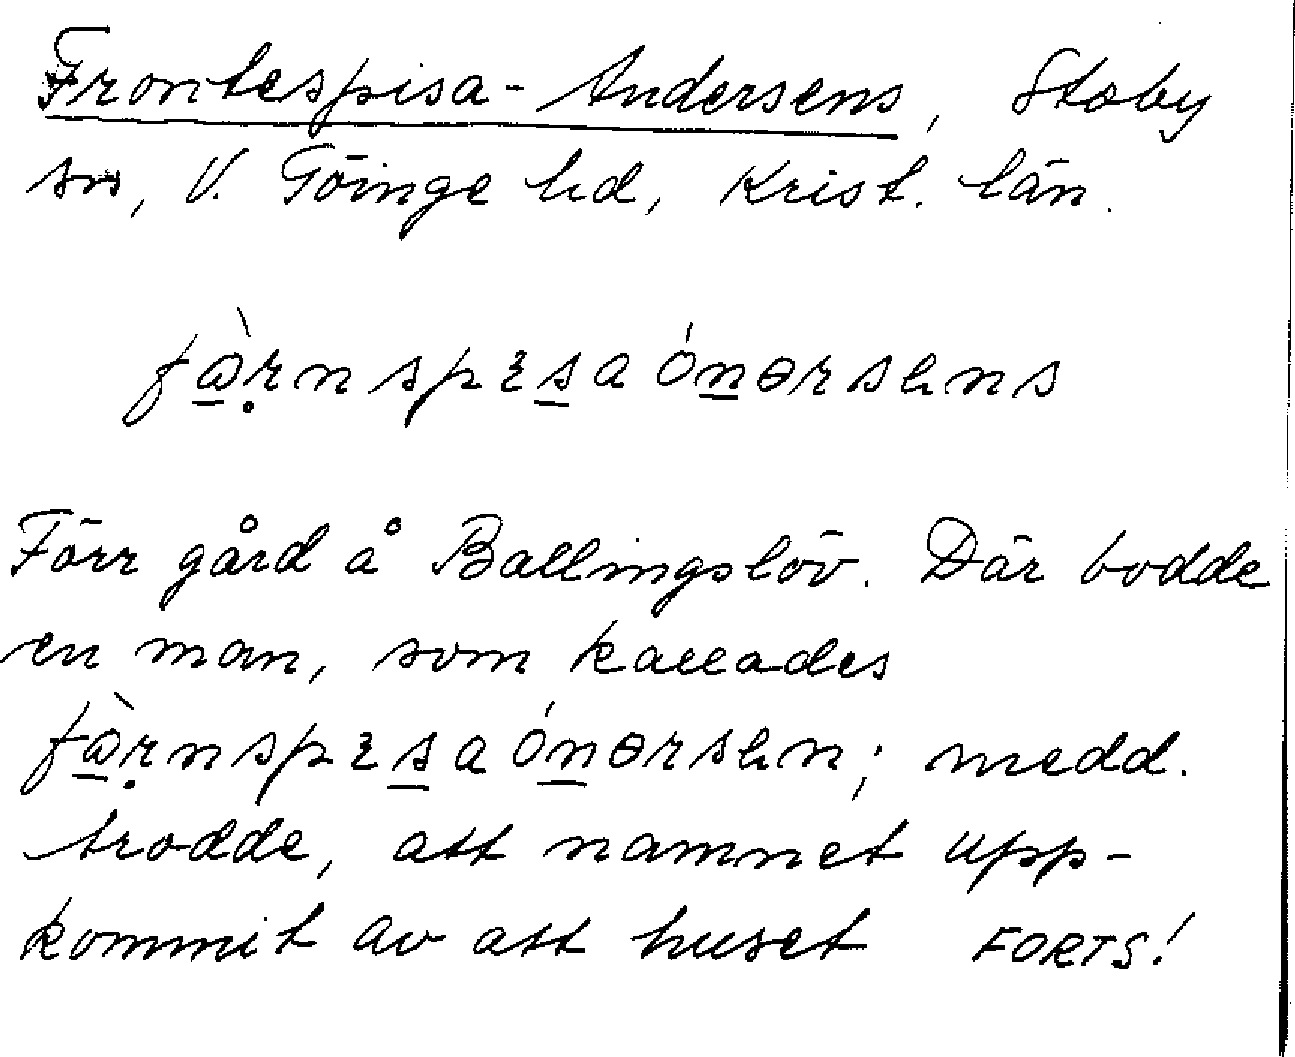 Frontespisa-Andersens, Stoby
sn, V. Göinge hd, Krist. län.
Förr gård å Ballingslöv. Där bodde
en man, som kallades
; medd.
trodde, att namnet upp-
kommit av att huset FORTS!